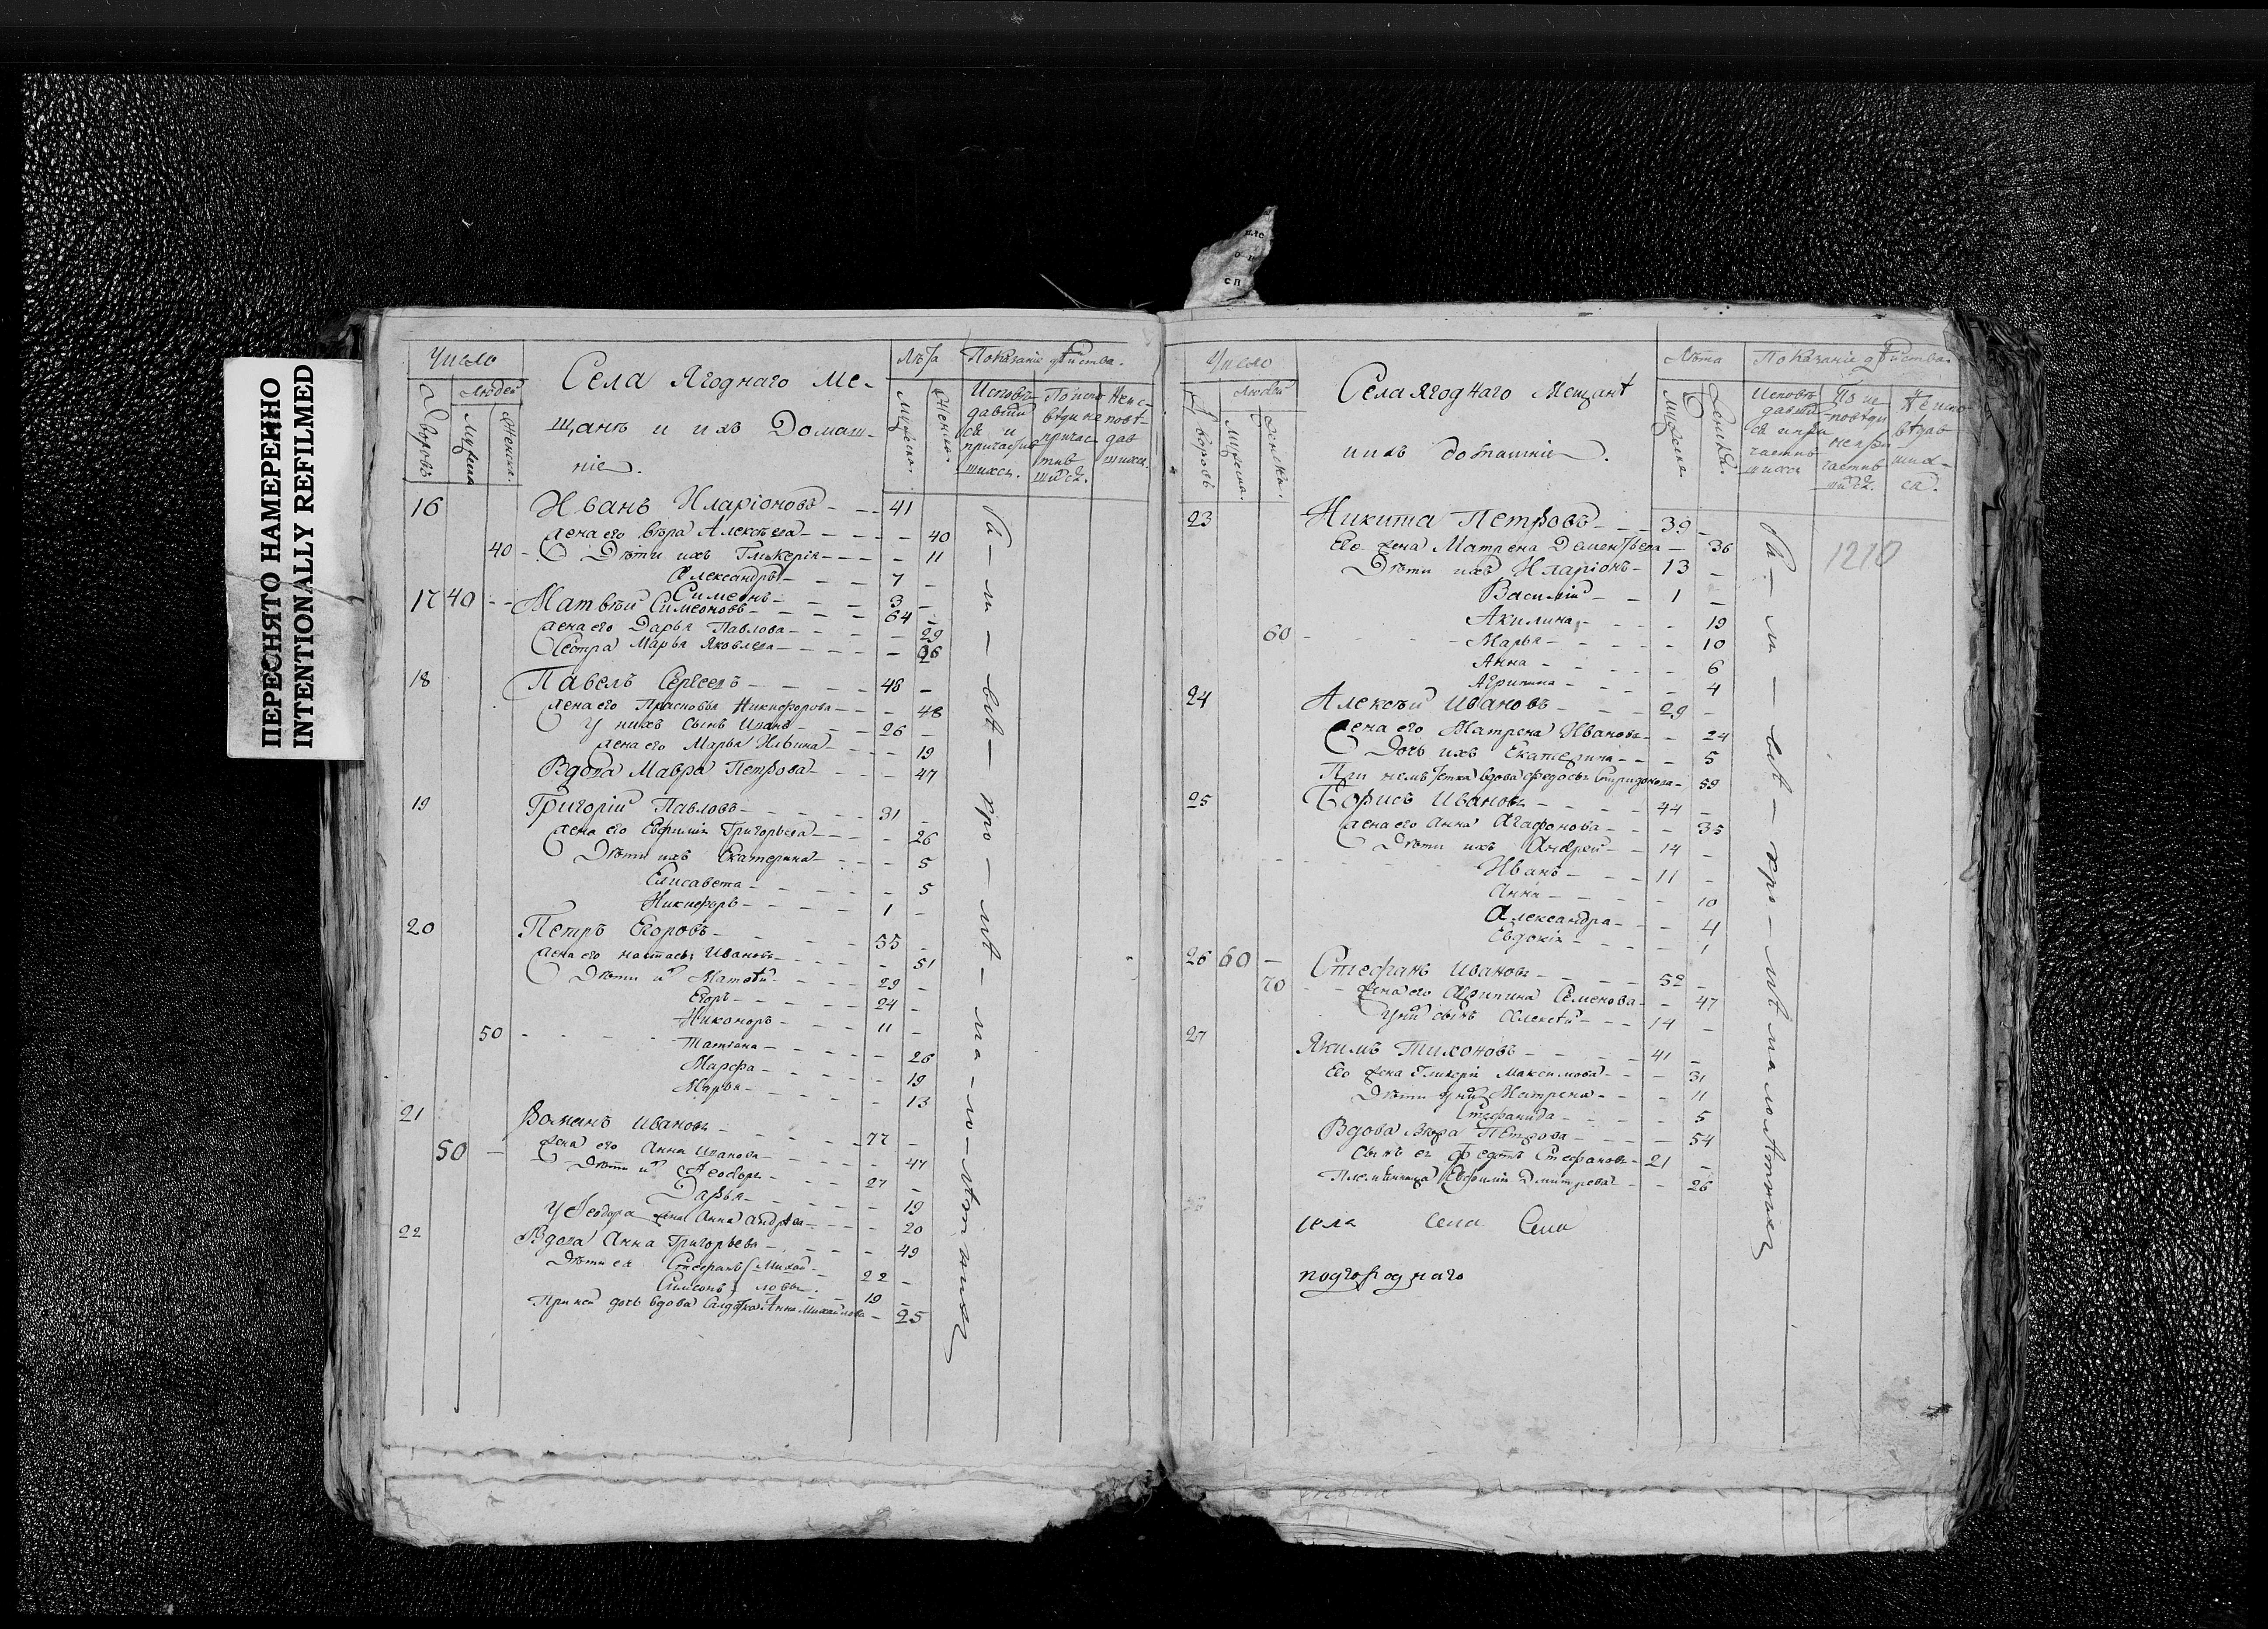 ПЕРЕСНЯТО НАМЕРЕННО
INTENTIONALLY REFILMED
Число
Дворовъ
Людей
Мужеска
Женска.
Села Ягоднаго Ме-
щанъ и ихъ Домаш-
ніе.
Лѣта
Мужеск.
Женска.
Показаніе дѣйства.
Исповѣ-
давші
сѧ и
причастив
шихся.
По испо
вѣди не
причас
тив
шихся.
Неис-
повѣ-
дав
шихся.
16 Иванъ Иларіоновъ - - 41
жена его Вѣра Алексѣева - - - - 40
40 - Дѣти ихъ Гликерія - - - - 11
Александръ - - - 7 -
Симеонъ - - - 3 -
17 40 - - Матвѣй Симеоновъ - - - 64 -
жена его Дарья Павлова - - - - 29
Сестра Марья Яковлева - - - - 36
18 Павелъ Сергеевъ - - - - 48 -
жена его Прасковья Никифорова - - - 48
У нихъ сынъ Иванъ - - - 26 -
жена его Марья Ильина - - - 19
Вдова Мавра Петрова - - - - 47
19 Григорій Павловъ - - - - 31 -
жена его Евфимія Григорьева - - - - 26
Дѣти ихъ Екатерина - - - - 5
Елисавета - - - - - 5
Никифоръ - - - - 1 -
20 Петръ Егоровъ - - - - 55 -
жена его Настасья Иванова - - - - - 51
Дѣти их Матвѣй - - - - 29 -
Егоръ - - - - 24 -
Никоноръ - - - 11 -
50 - - - - Татіана - - - - - 26
Марфа - - - - - 19
Марья - - - - - 13
21 Романъ Ивановъ - - - - 77 -
50 - жена его Анна Иванова - - - - - 47
Дѣти их Ѳеодоръ - - - 27 -
Дарья - - - - - 19
У Ѳеодора жена Анна Андрѣева - - - - 20
22 Вдова Анна Григорьева - - - - - 49
Дѣти ея Стефанъ Михай- 22 -
Симеонъ ловы. - - 19 -
При ней дочь вдова Солдатка Анна Михайлова - 25
Вы - ш - вѣ - кро - мѣ - ма - ло - лѣтнихъ
Число
Дворовъ
Людей
Мужска.
Женска.
Села Ягоднаго Мещанѣ
и ихъ домашніе.
Лѣта
Мужеска
Женска.
Показаніе дѣйства.
Исповѣ
давші
сѧ и при
частив
шихся
По ис
повѣди
непри
частив
шихся.
Неиспо
вѣдав
ших-
ся.
1210
23 Никита Петровъ - - - 39 -
Его жена Матрена Дементьева - 36
Дѣти ихъ Иларіонъ - 13 -
Василій - - 1 -
Акилина - - - - 19
60 - - - - Марья - - - - - 10
Анна - - - - - 6
Агрипина - - - - 4
24 Алексѣй Ивановъ - - - - 29 -
жена его Матрена Иванова - - 24
Дочь ихъ Екатерина - - - 5
При немъ тетка вдова Федосья Спиридонова - 59
25 Борисъ Ивановъ - - - - 44 -
жена его Анна Агафонова - - - 35
Дѣти ихъ Андрей - - 14 -
Иванъ - - - 11 -
Анна - - - - - 10
Александра - - - 4
Евдокія - - - - 1
26 60 - Стефанъ Ивановъ - - - - 52 -
70 - - жена его Агрипина Семенова - - 47
У них сынъ Алексѣй - - - 14 -
27 Якимъ Тихоновъ - - - - 41 -
Его жена Гликерія Максимова - - - 31
Дѣти у них Матрена - - - 11
Стефанида - - - - 5
Вдова Вѣра Петрова - - - - 54
Сынъ ея Федотъ Стефановъ - 21 -
Племянница Евфимія Дмитрева - - 26
Вы - ш - вѣ - кро - мѣ малолѣтнихъ
села села Села
подгороднаго